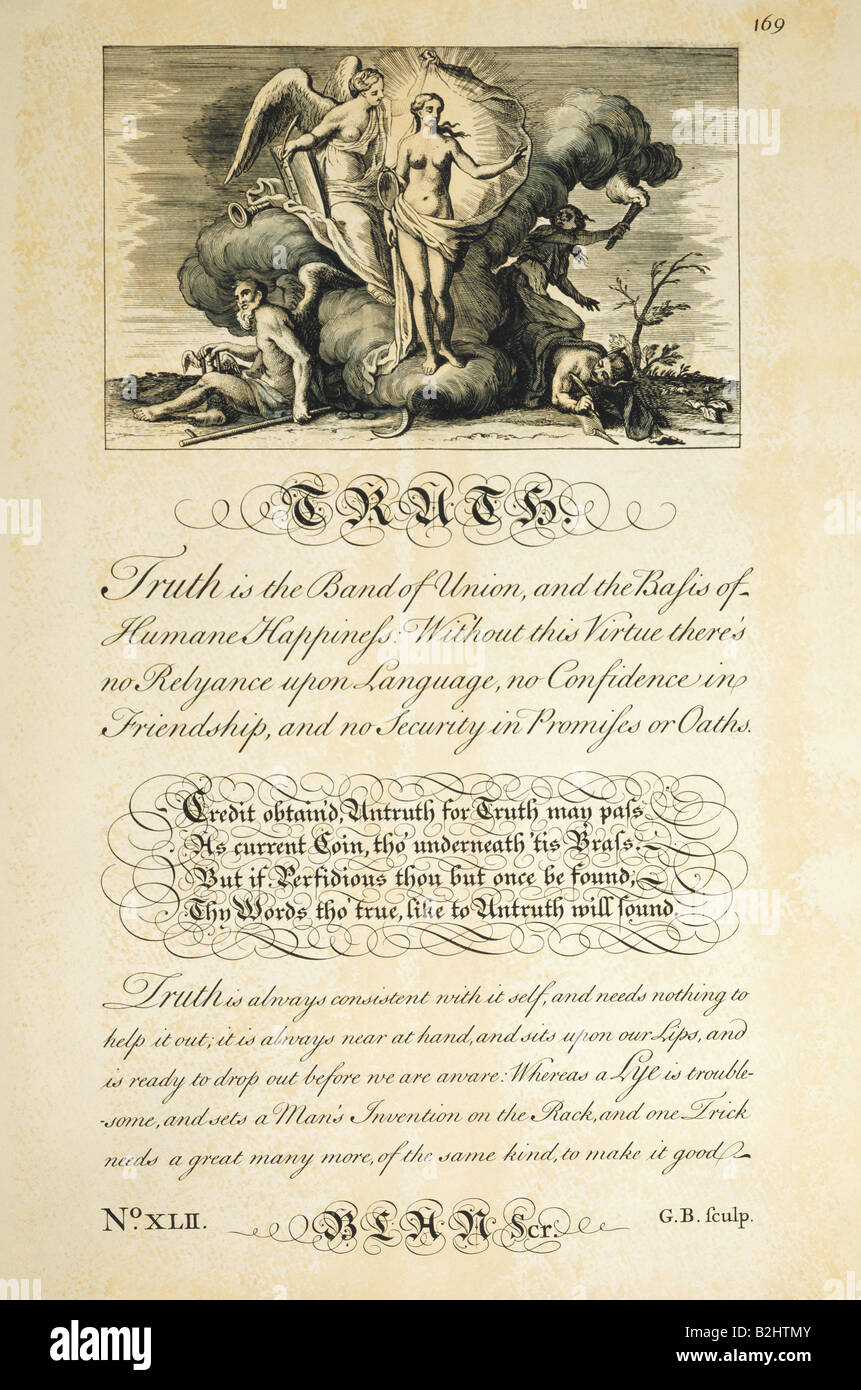 169
TRUTH.
Truth is the Band of Union, and the Baſis of
Humane Happineſs: Without this Virtue there's
no Relyance upon Language, no Confidence in
Friendship, and no Security in Promiſes or Oaths.
Credit obtain'd, Untruth for Truth may paſs
As current Coin, tho' underneath 'tis Braſs:
But if Perfidious thou but once be found,
Thy Words tho' true, like to Untruth will ſound.
Truth is always consistent with it self, and needs nothing to
help it out; it is always near at hand, and sits upon our Lips, and
is ready to drop out before we are aware: Whereas a Lye is trouble-
-some, and sets a Man's Invention on the Rack, and one Trick
needs a great many more, of the same kind, to make it good
No. XLII. BLAN Scr. G.B. ſculp.
alamy
Image ID: B2HTMY
www.alamy.com